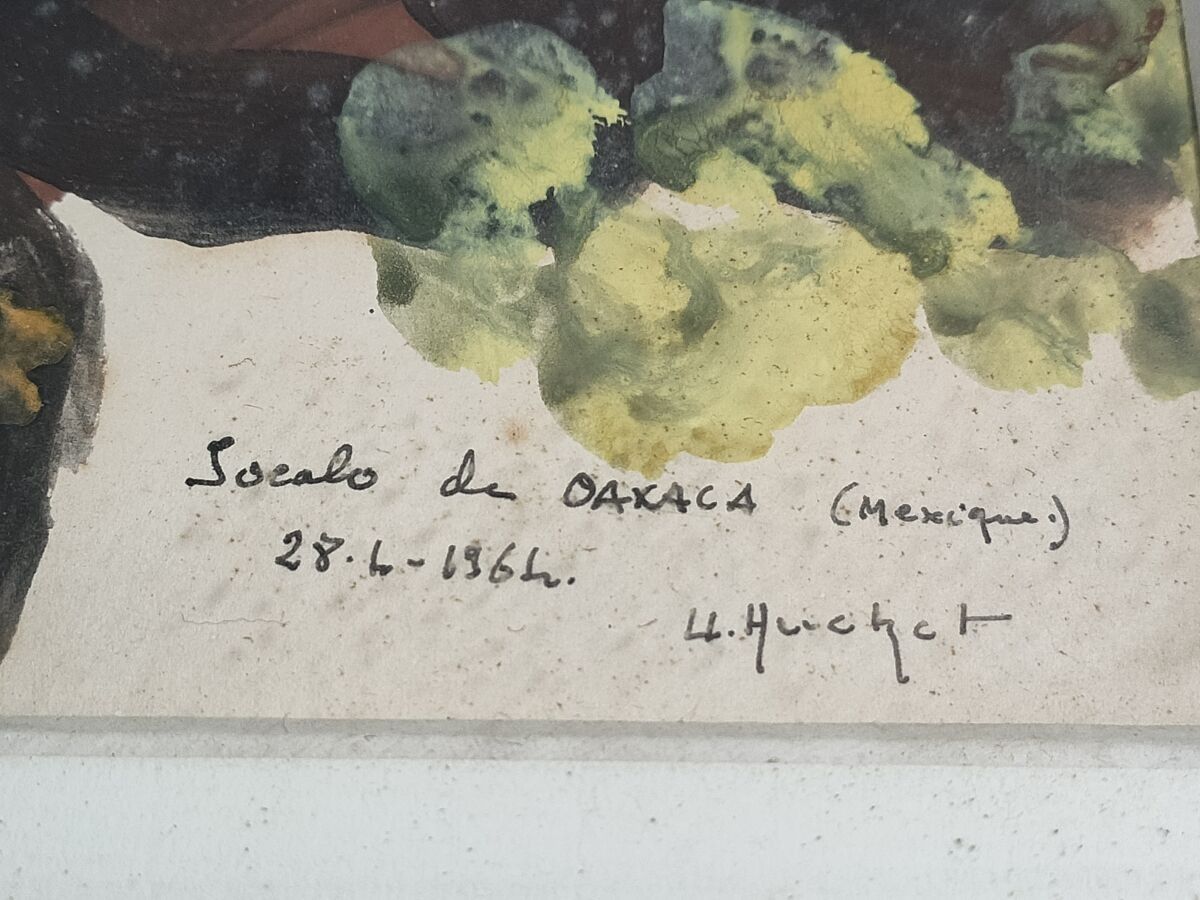 Socalo de OAXACA (Mexique.)
28.4-1964.
U.Huchet